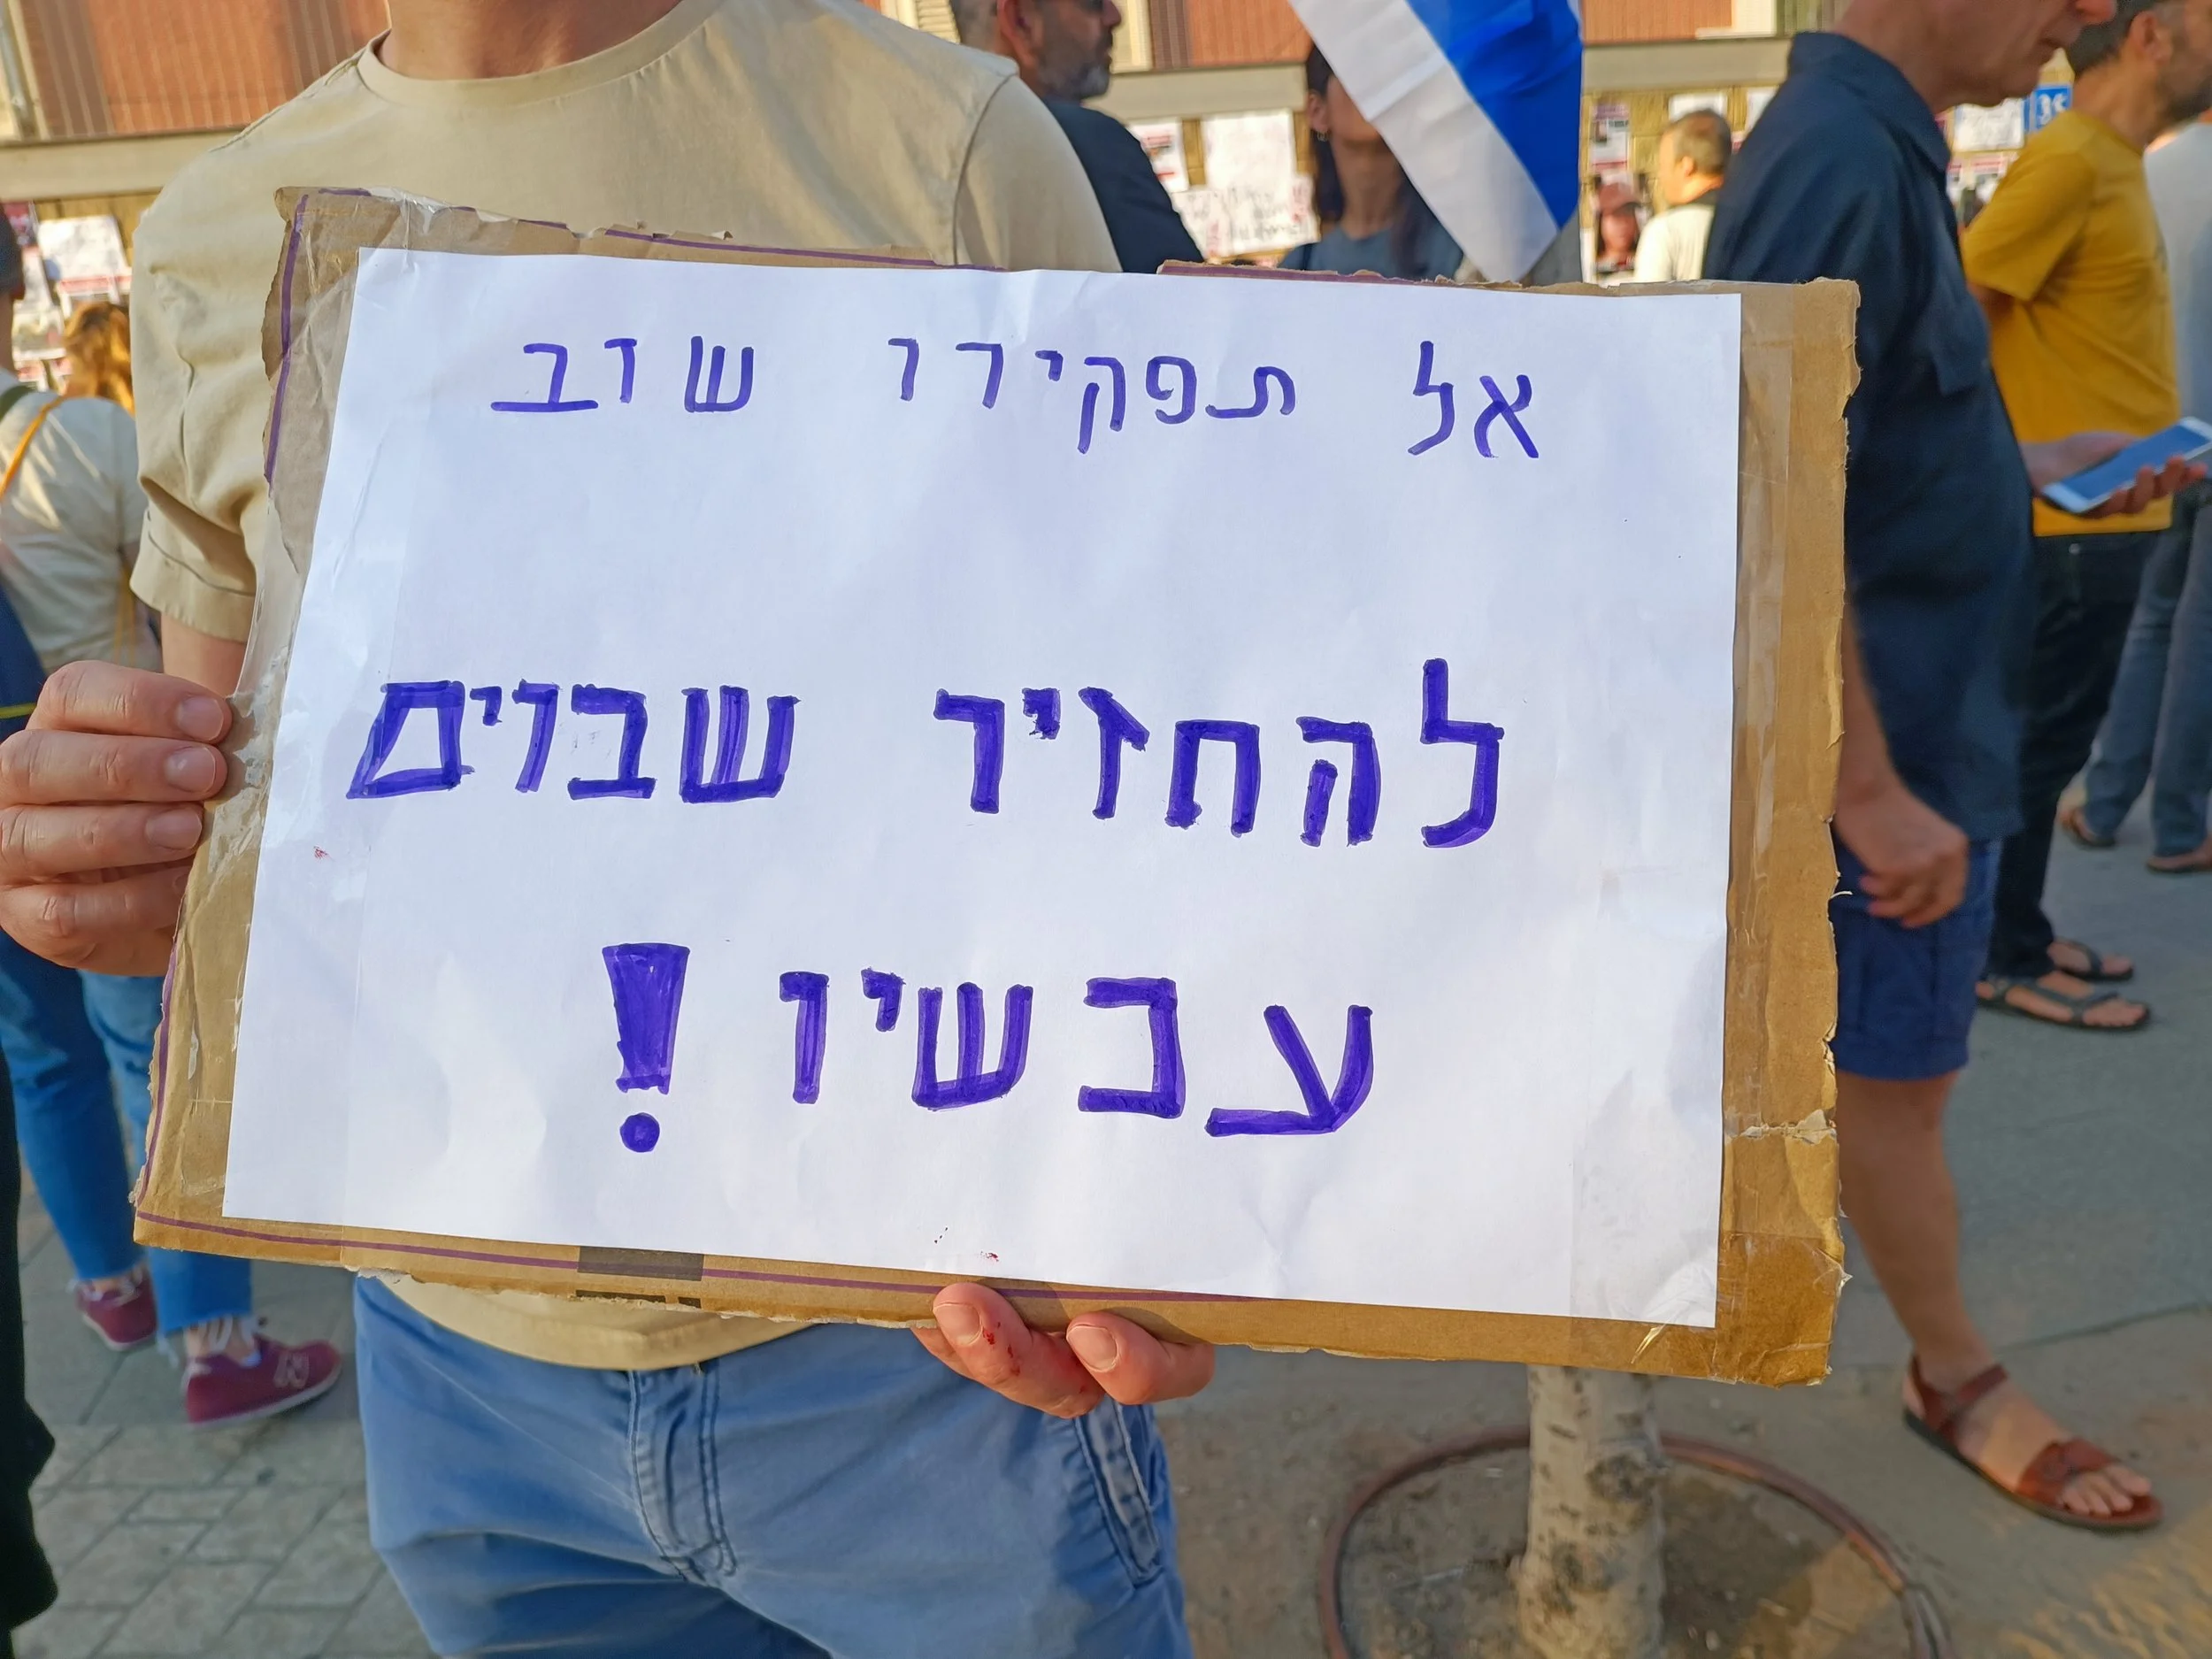 אל תפקירו שוב
להחזיר שבוים
עכשיו!